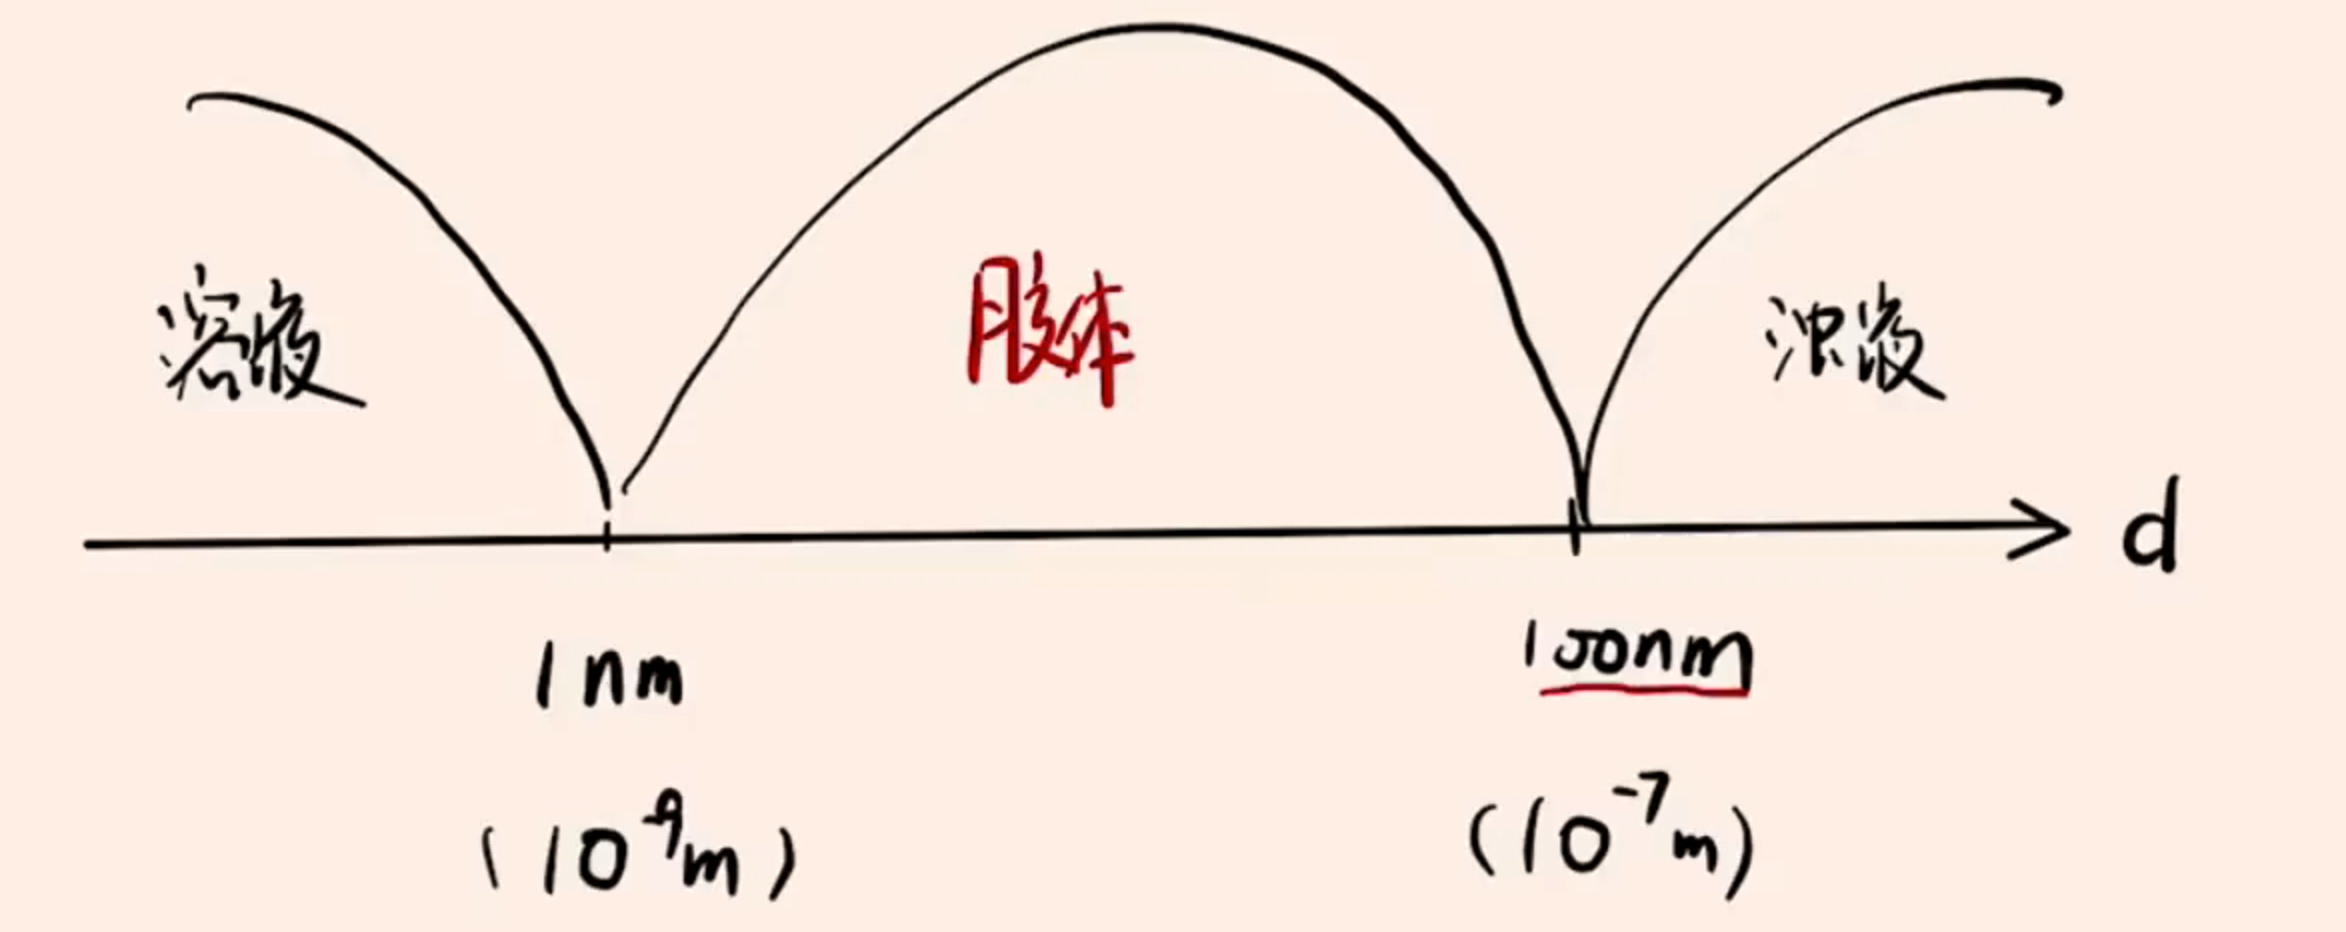 溶液 胶体 浊液
d
1nm 100nm
(10⁻⁹m) (10⁻⁷m)